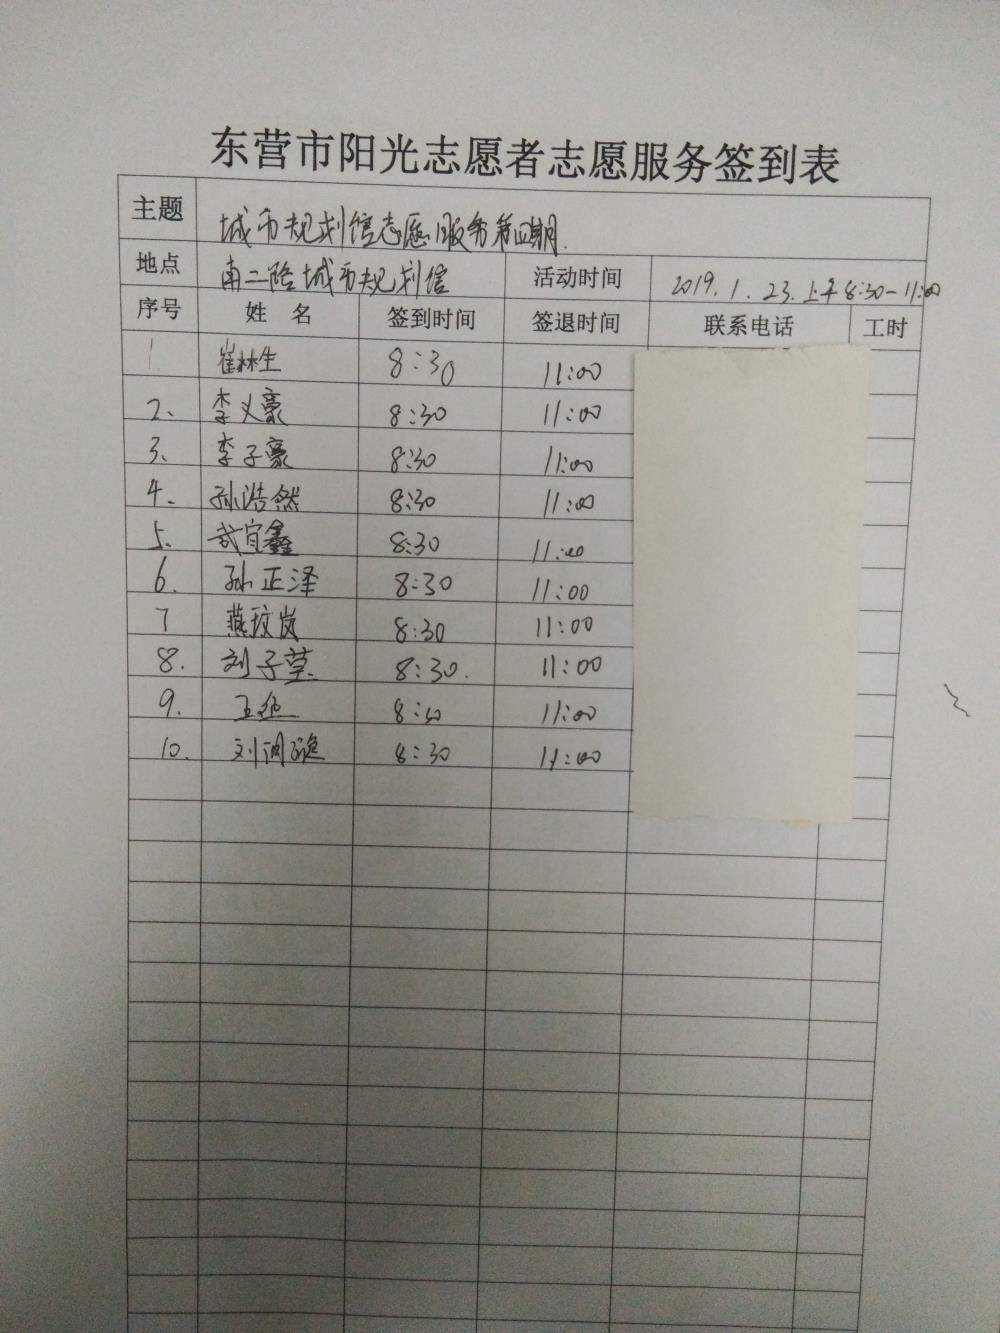 东营市阳光志愿者志愿服务签到表
主题 城市规划馆志愿服务第四期.
地点 南二路城市规划馆 活动时间 2019.1.23.上午8:30-11:00
序号 姓名 签到时间 签退时间 联系电话 工时
1 崔林生 8:30 11:00
2. 李义豪 8:30 11:00
3. 李子豪 8:30 11:00
4. 孙浩然 8:30 11:00
5. 武宜鑫 8:30 11:00
6. 孙正泽 8:30 11:00
7 燕玟岚 8:30 11:00
8. 刘子莹 8:30. 11:00
9. 8:30 11:00
10. 刘 8:30 11:00